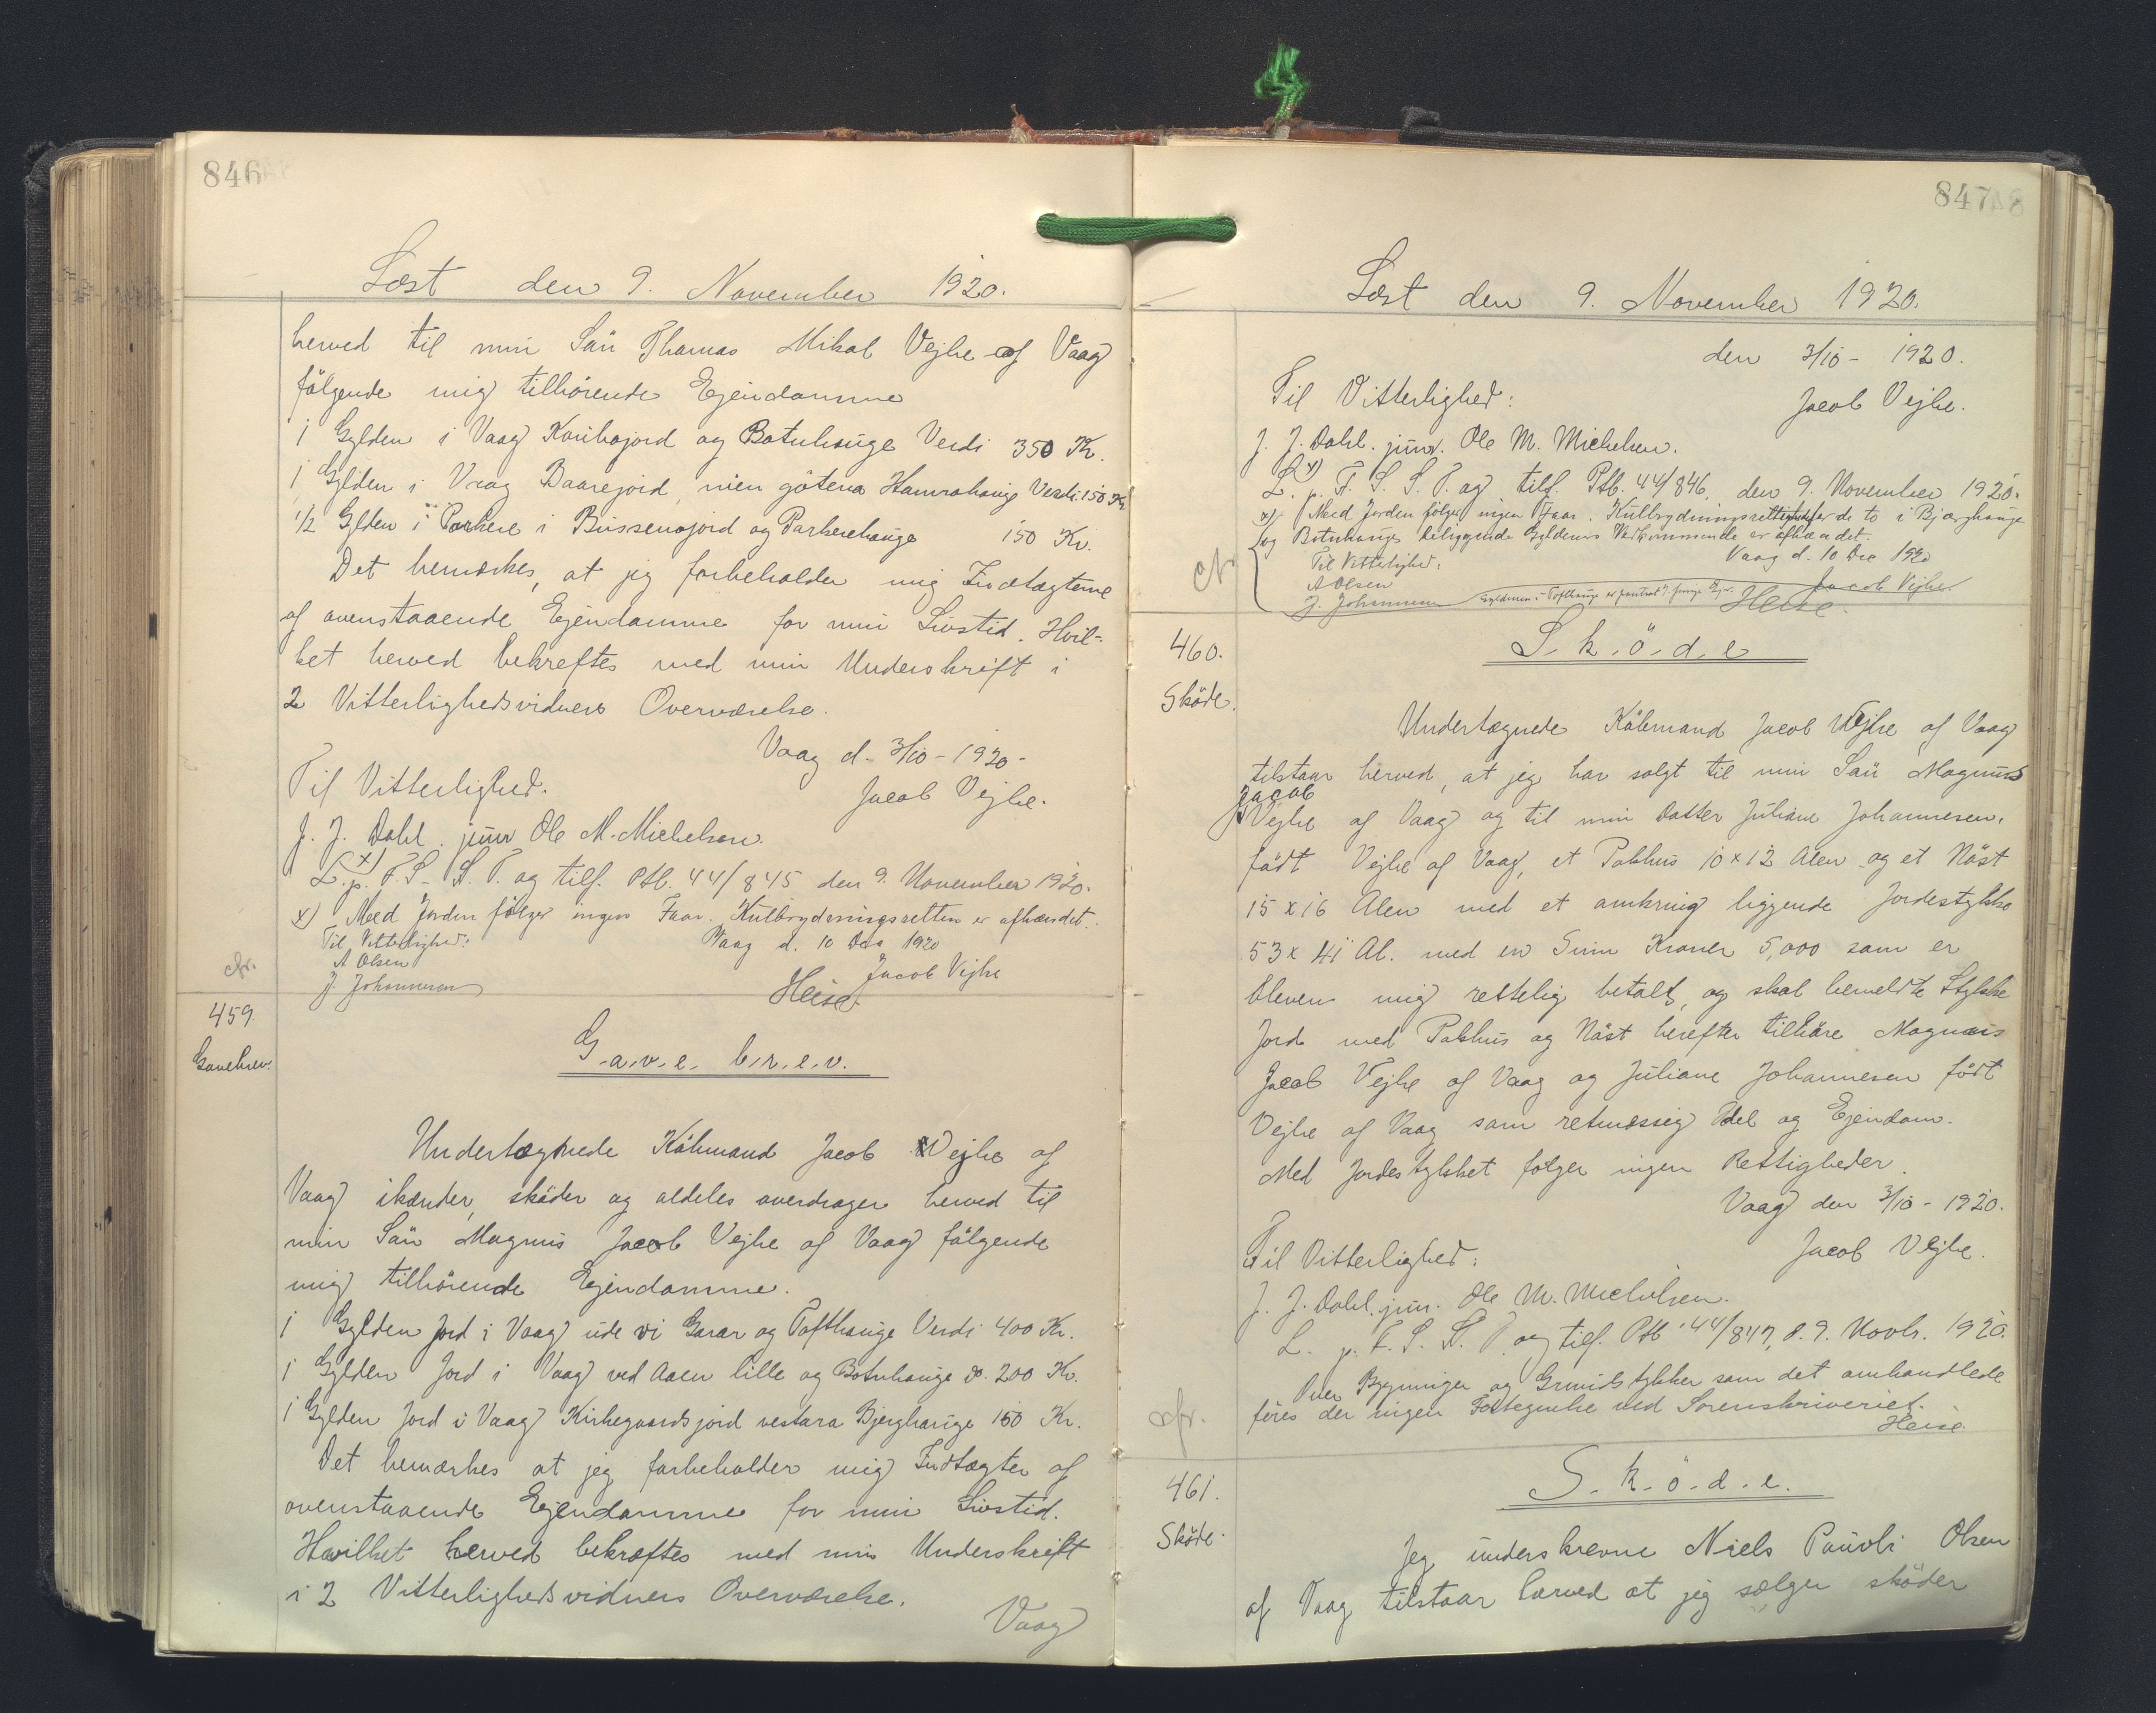 846
Læst den 9. November 1920.
herved til min Sön Thomas Mikal Vejhe af Vaag
fölgende mig tilhörende Ejendomme
1 Gylden i Vaag og Botnhauge Verdi 350 Kr.
1 Gylden i Vaag Baarejord, Hamrahauge Verdi 150 Kr
1/2 Gylden i Porkere i og Porkerehauge 150 Kr.
Det bemærkes, at jeg forbeholder mig Indtægterne
af ovenstaaende Ejendomme for min Livstid. Hvil-
ket herved bekreftes med min Underskrift i
2 Vitterlighedsvidners Overværelse.
Vaag d. 3/10 - 1920 -
Til Vitterlighed.
Jacob Vejhe.
J. J. Dahl. junr Ole M. Michelsen.
L. x) p. F. S. S. T. og tilf. Ptb. 44/845 den 9. November 1920.
x) Med Jorden fölger ingen Faar. Kulbrydningsretten er afhændet.
Til Vitterlighed:
Vaag d. 10 Dec 1920
A Olsen
Jacob Vejhe
J. Johannesen
cfr.
Heise.
459.
Gavebrev.
G.a.v.e. b.r.e.v.
Undertegnede Köbmand Jacob Vejhe af
Vaag skönder, sköder og aldeles overdrager herved til
min Sön Magnus Jacob Vejhe af Vaag fölgende
mig tilhörende Ejendomme.
1 Gylden Jord i Vaag ude vi Garar og Tofthauge Verdi 400 Kr.
1 Gylden Jord i Vaag ved Aaen lille og Botnhauge do. 200 Kr.
1 Gylden Jord i Vaag Kirkegaardsjord vestara Bjerghauge 150 Kr.
Det bemærkes at jeg forbeholder mig Indtægter af
ovenstaaende Ejendomme for min Livstid.
Hvilket herved bekræftes med min Underskrift
i 2 Vitterlighedsvidners Overværelse.
Vaag
847
Læst den 9. November 1920.
den 3/10 - 1920.
Til Vitterlighed:
Jacob Vejhe.
J. J. Dahl. junr. Ole M. Michelsen.
L. x) p. F. S. S. T. og tilf. Ptb. 44/846, den 9. November 1920.
x) Med Jorden fölger ingen Faar. Kulbrydningsretten for de to i Bjerghauge
og Botnhauge beliggende Gyldens Vedkommende er afhændet.
Til Vitterlighed:
Vaag d. 10 Dec 1920
A Olsen
Jacob Vejhe
J. Johannesen
cfr.
Gylden i Tofthauge er
Heise.
460.
Sköde.
S.k.ö.d.e
Undertegnede Köbmand Jacob Vejhe af Vaag
tilstaar herved, at jeg har solgt til min Sön Magnus
Jacob
Vejhe af Vaag og til min Datter Juliane Johannesen,
födt Vejhe af Vaag, et Pakhus 10 x 12 Alen og et Nöst
15 x 16 Alen med et omkring liggende Jordestykke
53 x 41 Al. med en Sum Kroner 5,000 som er
bleven mig rettelig betalt, og skal bemeldte Stykke
Jord med Pakhus og Nöst herefter tilhöre Magnus
Jacob Vejhe af Vaag og Juliane Johannesen födt
Vejhe af Vaag som retmæssig Odel og Ejendom.
Med Jordestykket fölger ingen Rettigheder.
Vaag den 3/10 - 1920.
Til Vitterlighed:
Jacob Vejhe.
J. J. Dahl. jun. Ole M. Michelsen.
L. p. F. S. S. T. og tilf. Ptb. 44/847, d. 9. Novbr. 1920.
Over Bygninger og Grundstykker som det omhandlede
föres der ingen Fortegnelse ved Sorenskriveriet.
cfr.
Heise.
461.
Sköde.
S.k.ö.d.e.
Jeg underskrevne Niels Pauoli Olsen
af Vaag tilstaar herved at jeg sælger sköder